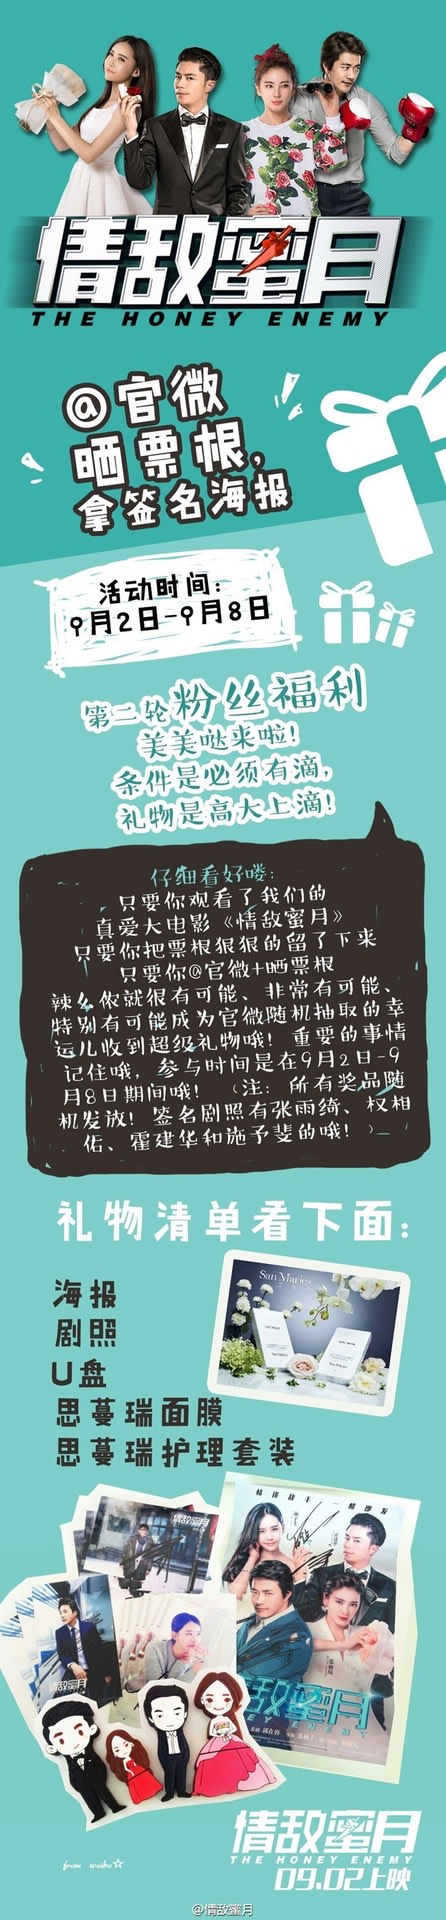 情敌蜜月
THE HONEY ENEMY
@官微
晒票根，
拿签名海报
活动时间：
9月2日-9月8日
第二轮粉丝福利
美美哒来啦！
条件是必须有滴，
礼物是高大上滴！
仔细看好喽：
只要你观看了我们的
真爱大电影《情敌蜜月》
只要你把票根狠狠的留了下来
只要你@官微+晒票根
辣么你就很有可能、非常有可能、
特别有可能成为官微随机抽取的幸
运儿收到超级礼物哦！重要的事情
记住哦，参与时间是在9月2日-9
月8日期间哦！（注：所有奖品随
机发放！签名剧照有张雨绮、权相
佑、霍建华和施予斐的哦！）
礼物清单看下面：
海报
剧照
U盘
思蔓瑞面膜
思蔓瑞护理套装
San Maries
情敌蜜月
情敌蜜月
情敌蜜月
THE HONEY ENEMY
09.02上映
from weibo☆
@情敌蜜月